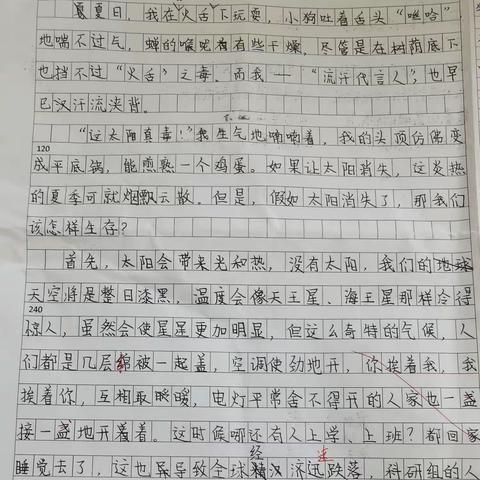 夏夏日，我在火舌下玩耍，小狗吐着舌头“呲哈”
地喘不过气，蝉的喉咙有有些干燥，尽管是在树荫底下
也挡不过“火舌”之毒。而我——“流汗代言人”，也早
已汉汗流浃背。
“这太阳真毒！”我生气地喃喃着，我的头顶仿佛变
120
成平底锅，能煎熟一个鸡蛋。如果让太阳消失，这炎热
的夏季可就烟飘云散。但是，假如太阳消失了，那我们
该怎样生存？
首先，太阳会带来光和热，没有太阳，我们的地球
天空将是整日漆黑，温度会像天王星、海王星那样冷得
240
惊人，虽然会使星星更加明显，但这么奇特的气候，人
们都是几层棉被一起盖，空调使劲地开，你挨着我，我
挨着你，互相取暖暖，电灯平常舍不得开的人家也一盏
接一盏地开着着。这时候哪还有人上学、上班？都回家
经 速
睡觉去了，这也导致全球济迅跌落，科研组的人